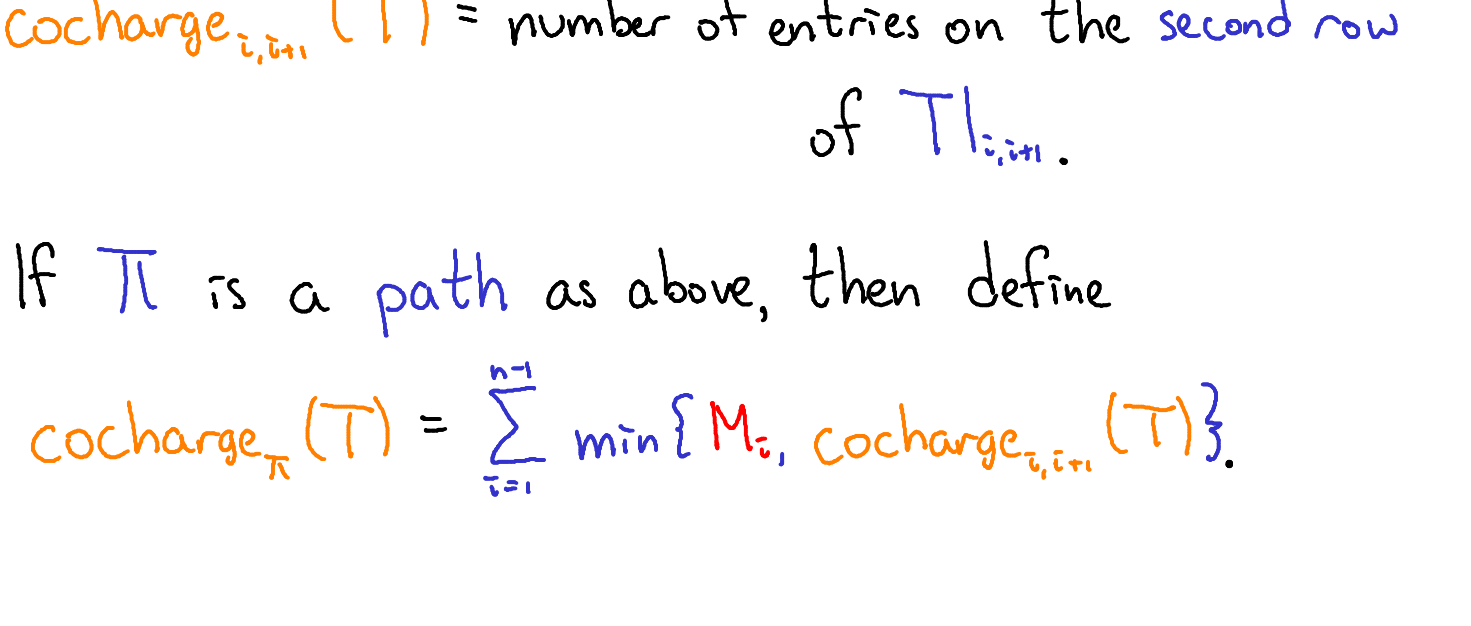 cocharge_{i,i+1} (T) = number of entries on the second row
of T|_{i,i+1}.
If π is a path as above, then define
cocharge_π (T) = \sum_{i=1}^{n-1} min{M_i, cocharge_{i,i+1} (T)}.